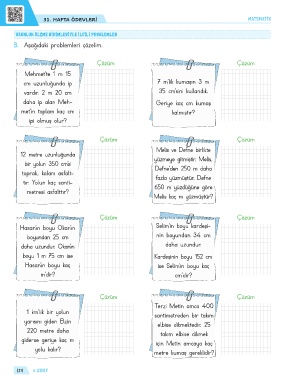 31. HAFTA ÖDEVLERİ
MATEMATİK
UZUNLUK ÖLÇME BİRİMLERİYLE İLGİLİ PROBLEMLER
B. Aşağıdaki problemleri çözelim.
Çözüm
Mehmet'te 1 m 15
cm uzunluğunda ip
vardır. 2 m 20 cm
daha ip alan Meh-
met'in toplam kaç cm
ipi olmuş olur?
Çözüm
7 m'lik kumaşın 3 m
35 cm'sini kullandık.
Geriye kaç cm kumaş
kalmıştır?
Çözüm
12 metre uzunluğunda
bir yolun 350 cm'si
toprak, kalanı asfaltlı-
tır. Yolun kaç santi-
metresi asfalttır?
Çözüm
Melis ve Defne birlikte
yüzmeye gitmiştir. Melis,
Defne'den 250 m daha
fazla yüzmüştür. Defne
650 m yüzdüğüne göre
Melis kaç m yüzmüştür?
Çözüm
Hasan'ın boyu Okan'ın
boyundan 25 cm
daha uzundur. Okan'ın
boyu 1 m 75 cm ise
Hasan'ın boyu kaç
m'dir?
Çözüm
Selim'in boyu kardeşi-
nin boyundan 34 cm
daha uzundur.
Kardeşinin boyu 152 cm
ise Selim'in boyu kaç
cm'dir?
Çözüm
1 km'lik bir yolun
yarısını giden Elan
220 metre daha
giderse geriye kaç m
yolu kalır?
Çözüm
Terzi Metin amca 400
santimetreden bir takım
elbise dikmektedir. 25
takım elbise dikmek
için Metin amcaya kaç
metre kumaş gereklidir?
3. SINIF